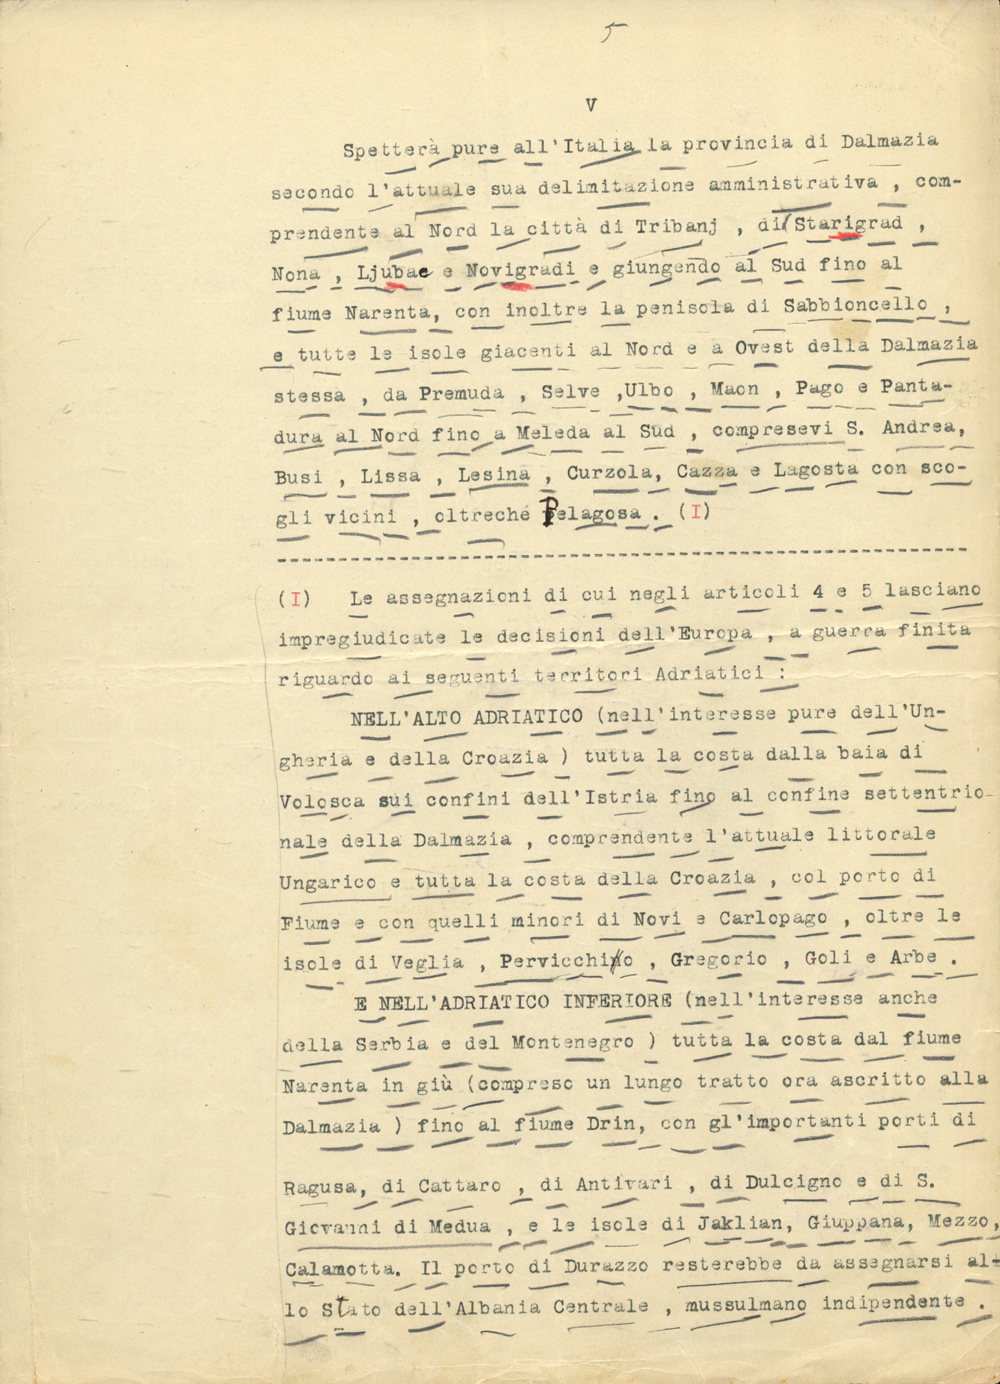 5
V
Spetterà pure all'Italia la provincia di Dalmazia
secondo l'attuale sua delimitazione amministrativa , com-
prendente al Nord la città di Tribanj , di Starigrad ,
Nona , Ljubac e Novigradi e giungendo al Sud fino al
fiume Narenta, con inoltre la penisola di Sabbioncello ,
e tutte le isole giacenti al Nord e a Ovest della Dalmazia
stessa , da Premuda , Selve ,Ulbo , Maon , Pago e Panta-
dura al Nord fino a Meleda al Sud , compresevi S. Andrea,
Busi , Lissa , Lesina , Curzola, Cazza e Lagosta con sco-
gli vicini , oltreché Pelagosa . (I)
(I) Le assegnazioni di cui negli articoli 4 e 5 lasciano
impregiudicate le decisioni dell'Europa , a guerra finita
riguardo ai seguenti territori Adriatici :
NELL'ALTO ADRIATICO (nell'interesse pure dell'Un-
gheria e della Croazia ) tutta la costa dalla baia di
Volosca sui confini dell'Istria fino al confine settentrio-
nale della Dalmazia , comprendente l'attuale littorale
Ungarico e tutta la costa della Croazia , col porto di
Fiume e con quelli minori di Novi e Carlopago , oltre le
isole di Veglia , Pervicchio , Gregorio , Goli e Arbe .
E NELL'ADRIATICO INFERIORE (nell'interesse anche
della Serbia e del Montenegro ) tutta la costa dal fiume
Narenta in giù (compreso un lungo tratto ora ascritto alla
Dalmazia ) fino al fiume Drin, con gl'importanti porti di
Ragusa, di Cattaro , di Antivari , di Dulcigno e di S.
Giovanni di Medua , e le isole di Jaklian, Giuppana, Mezzo,
Calamotta. Il porto di Durazzo resterebbe da assegnarsi al-
lo Stato dell'Albania Centrale , mussulmano indipendente .